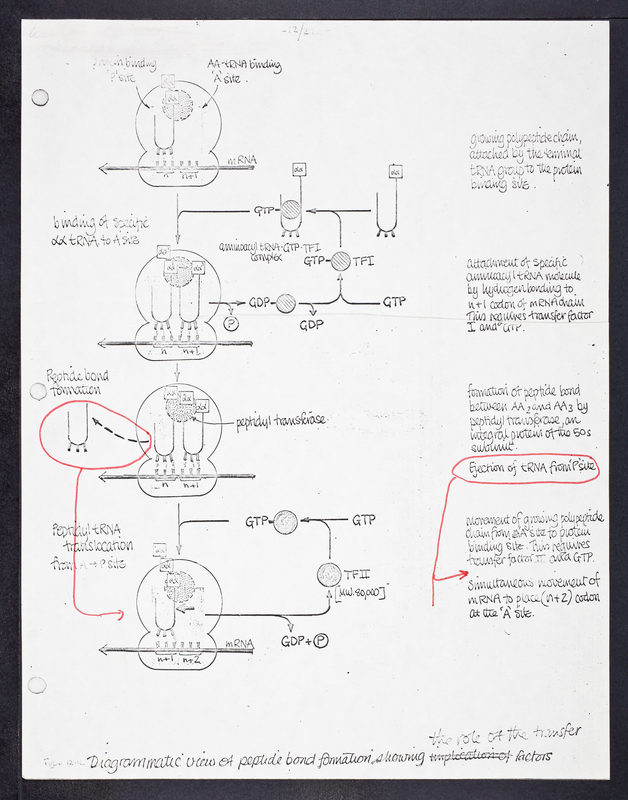 binding
'P' site
AA-tRNA binding
'A' site.
αα
mRNA
n n+1
growing polypeptide chain,
attached by the terminal
tRNA group to the protein
binding site.
αα
αα
GTP
binding of specific
αα tRNA to A site
aminoacyl tRNA-GTP-TFI
complex
GTP
TFI
αα
αα
αα
GDP
GTP
P
GDP
n n+1
attachment of specific
aminoacyl tRNA molecule
by hydrogen bonding to
n+1 codon of mRNA chain
This requires transfer factor
I and GTP.
Peptide bond
formation
αα
αα
αα
peptidyl transferase
n n+1
formation of peptide bond
between AA2 and AA3 by
peptidyl transferase, an
integral protein of the 50s
subunit.
Ejection of tRNA from 'P' site
GTP
GTP
Peptidyl tRNA
translocation
from A → P site
αα
αα
αα
TFII
[MW. 80,000]
GDP+P
mRNA
n+1 n+2
movement of growing polypeptide
chain from A site to protein
binding site. This requires
transfer factor II and GTP.
simultaneous movement of
mRNA to place (n+2) codon
at the 'A' site.
the role of the transfer
Diagrammatic view of peptide bond formation, showing implication of factors